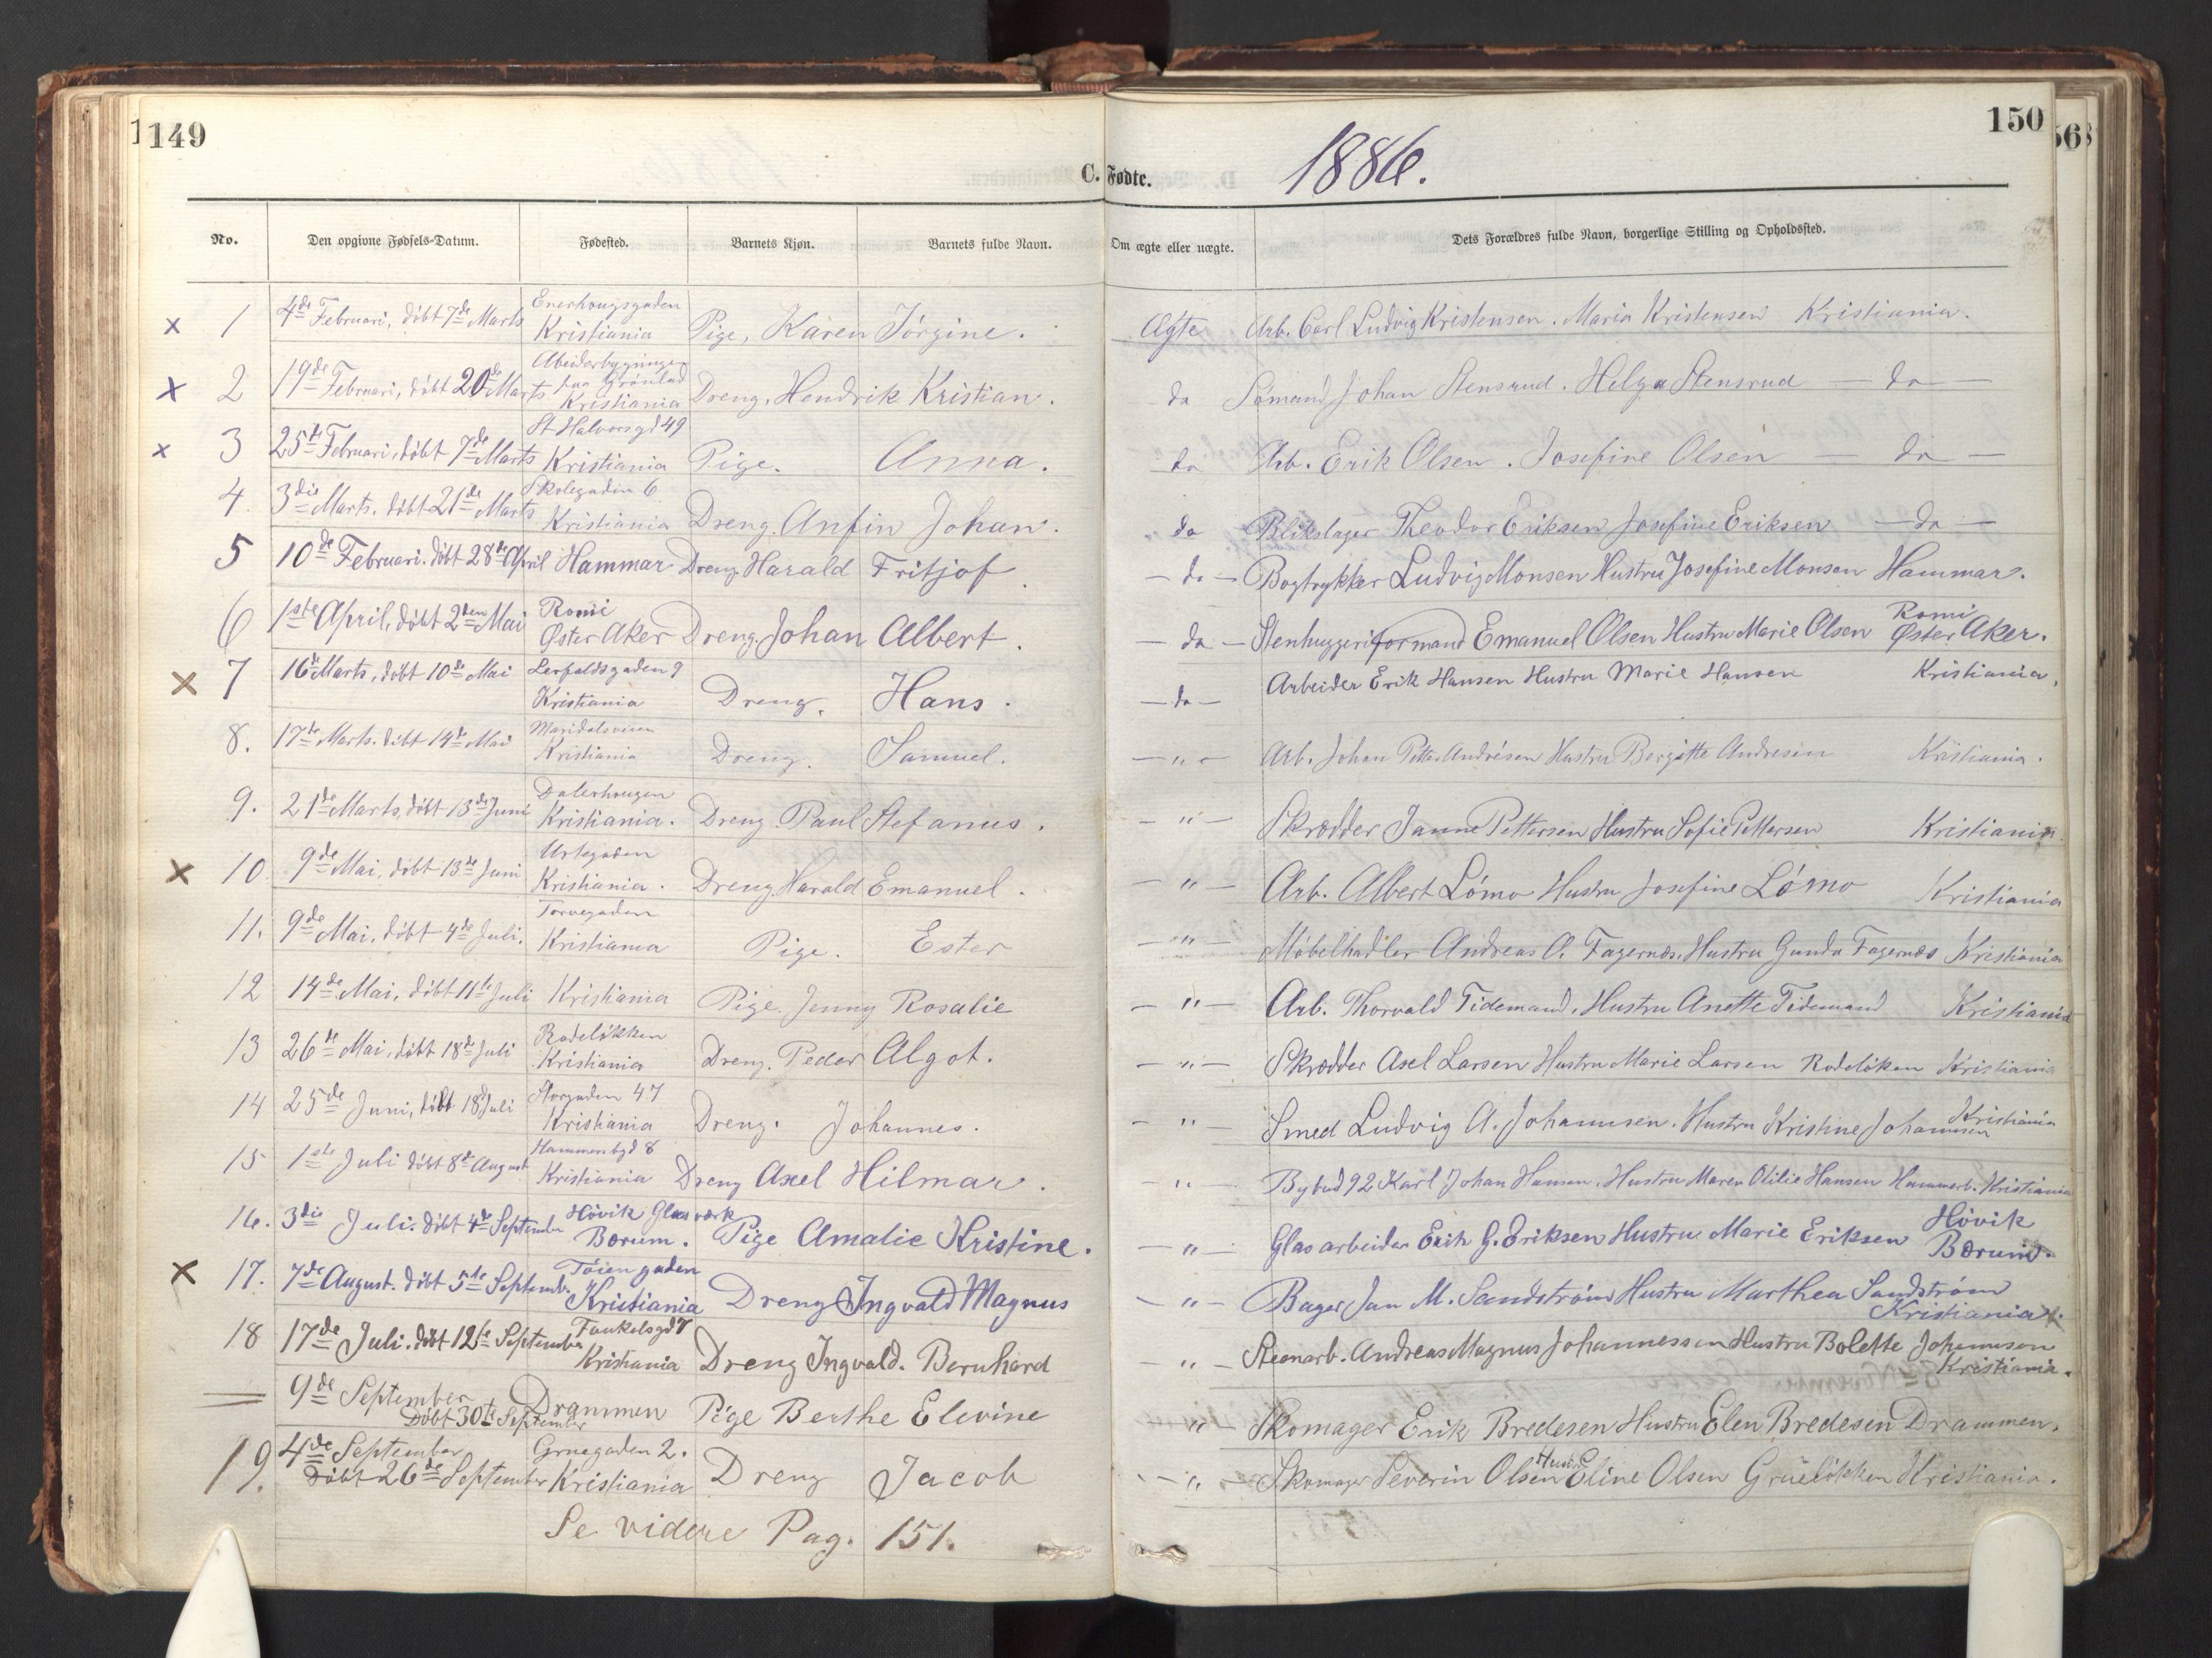 149
150
C. Fødte.
1886.
No. Den opgivne Fødsels-Datum. Fødested. Barnets Kjøn. Barnets fulde Navn. Om ægte eller uægte. Dets Forældres fulde Navn, borgerlige Stilling og Opholdssted.
Enerhougsgaden
x 1 4de Februari, døbt 7de Marts Kristiania Pige, Karen Jørgine. Ægte Arb. Carl Ludvig Kristensen. Maria Kristensen Kristiania.
Abeiderbygningen
paa Grønland
x 2 19de Februari, døbt 20de Marts Kristiania Dreng, Hendrik Kristian. da Sømand Johan Stensrud. Helga Stensrud — da —
St Halvorsgd 49
x 3 25de Februari, døbt 7de Marts Kristiania Pige. Anna. da Arb. Erik Olsen. Josefine Olsen — da —
Skolegaden 6
4. 3die Marts. døbt 21de Marts Kristiania Dreng. Anfin Johan. da Blikslager Theodor Eriksen Josefine Eriksen — da —
5 10de Februari. døbt 28de April Hammar Dreng. Harald Fritjof — da — Bogtrykker Ludvig Monsen Hustru Josefine Monsen Hammar.
Romi Romi
6 1ste April, døbt 2den Mai Øster Aker Dreng. Johan Albert. — da — Stenhuggeriformand Emanuel Olsen Hustru Marie Olsen Øster Aker.
x 7 16de Marts, døbt 10de Mai Lerfaldsgaden 9 Arbeider Erik Hansen Hustru Marie Hansen Kristiania,
Kristiania Dreng. Hans. — da —
Maridalsveien
8. 17de Marts. døbt 14de Mai Kristiania Dreng. Samuel. — " — Arb. Johan Petter Andresen Hustru Bergitte Andresen Kristiania.
Dalerhougen
9. 21de Marts, døbt 13de Juni Kristiania. Dreng. Paul Stefanus. — " — Skrædder Janne Pettersen Hustru Sofie Pettersen Kristiania.
Urtegaden
x 10 9de Mai, døbt 13de Juni Kristiania. Dreng. Harald Emanuel. — " — Arb. Albert Lømo Hustru Josefine Lømo Kristiania
Torvegaden
11. 9de Mai. døbt 4de Juli. Kristiania Pige. Ester — " — Møbelhadler Andreas O. Fagernæs. Hustru Gunda Fagernæs Kristiania
12 14de Mai, døbt 11te Juli Kristiania Pige. Jenny Rosalie — " — Arb. Thorvald Tidemand. Hustru Anette Tidemand Kristiania
Rodeløkken
13 26de Mai, døbt 18de Juli Kristiania Dreng. Peder Algot. — " — Skrædder Axel Larsen Hustru Marie Larsen Rodeløken Kristiania
Storgaden 47
14 25de Juni, døbt 18de Juli Kristiania Dreng. Johannes. — " — Smed Ludvig A. Johannsen. Hustru Kristine Johannsen Kristiania
Hammersbgd 8
15 1ste Juli døbt 8de August Kristiania Dreng Axel Hilmar. — " — Bybud 92 Karl Johan Hansen. Hustru Maren Otilie Hansen Hammerb. Kristiania
Høvik Glasværk Høvik
16. 3die Juli. døbt 4de September Bærum. Pige Amalie Kristine. — " — Glasarbeider Erik G. Eriksen Hustru Marie Eriksen Bærum.
Tøiengaden
x 17. 7de August. døbt 5te Septemb. Kristiania Dreng Ingvald Magnus — " — Bager Jan M. Sandstrøm Hustru Marthea Sandstrøm
Kristiania.
18 17de Juli. døbt 12te September Kristiania Dreng Ingvald. Bernhard — " — Andreas Magnus Johannessen Hustru Bolette Johannsen
Kristiania.
= 9de September Drammen Pige Berthe Elevine " Skomager Erik Bredesen Hustru Elen Bredesen Drammen.
Døbt 30te September
4de September Gruegaden 2.
19. Døbt 26de September Kristiania Dreng Jacob — " — Skomager Severin Olsen Hus. Eline Olsen Grueløkken Kristiania.
Se videre Pag. 151.